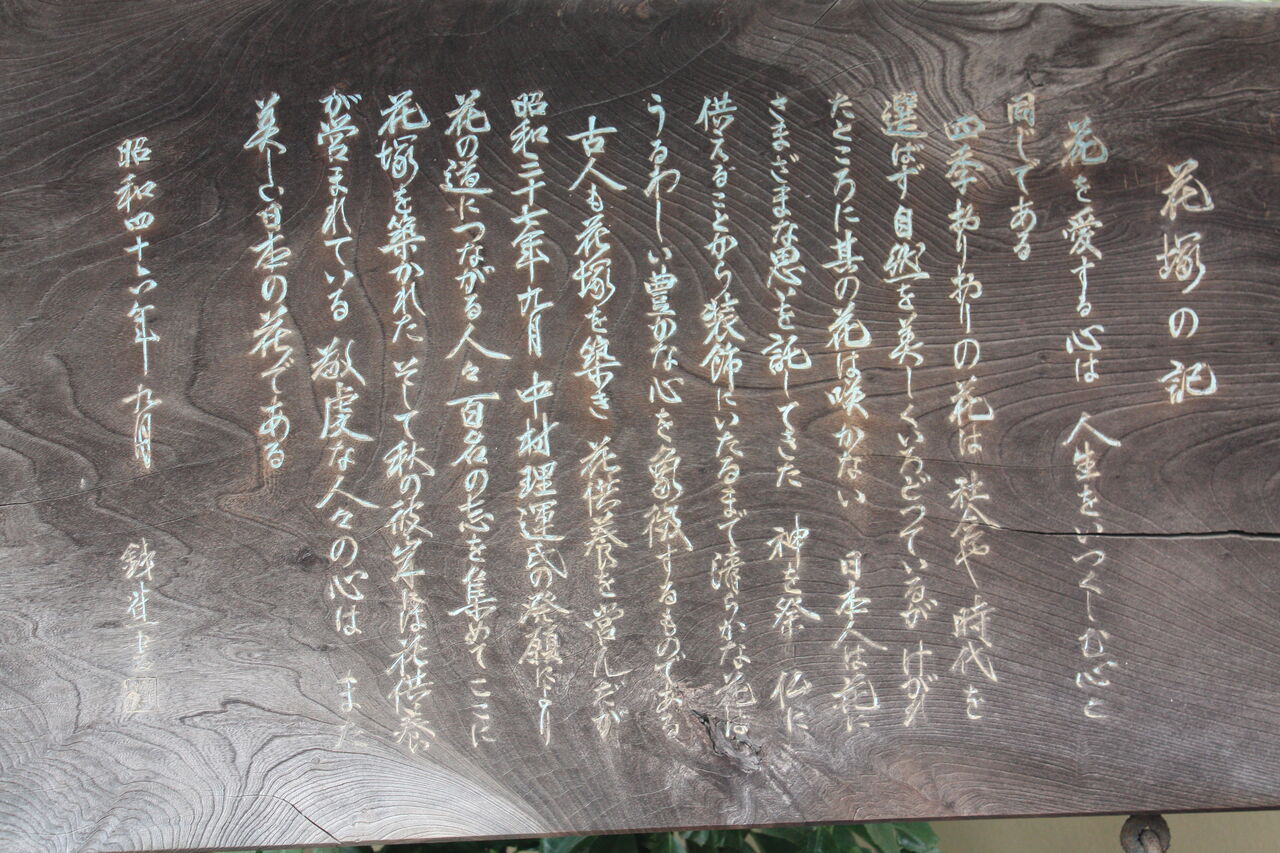 花塚の記
花を愛する心は 人生をいつくしむ心と
同じである
四季おりおりの花は 社会や 時代を
選ばず自然を美しくいろどっているが けがれ
たところに其の花は咲かない 日本人は花に
さまざまな思いを託してきた 神を祭り 仏に
供えることから装飾にいたるまで清らかな花は
うるわしい豊かな心を象徴するものである
古人も花塚を築き 花供養を営んだが
昭和三十七年九月 中村理運氏の発願により
花の道につながる人々百名の志を集めてここに
花塚を築かれた そして秋の彼岸には花供養
が営まれている 敬虔な人々の心は また
美しい日本の花である
昭和四十六年 九月